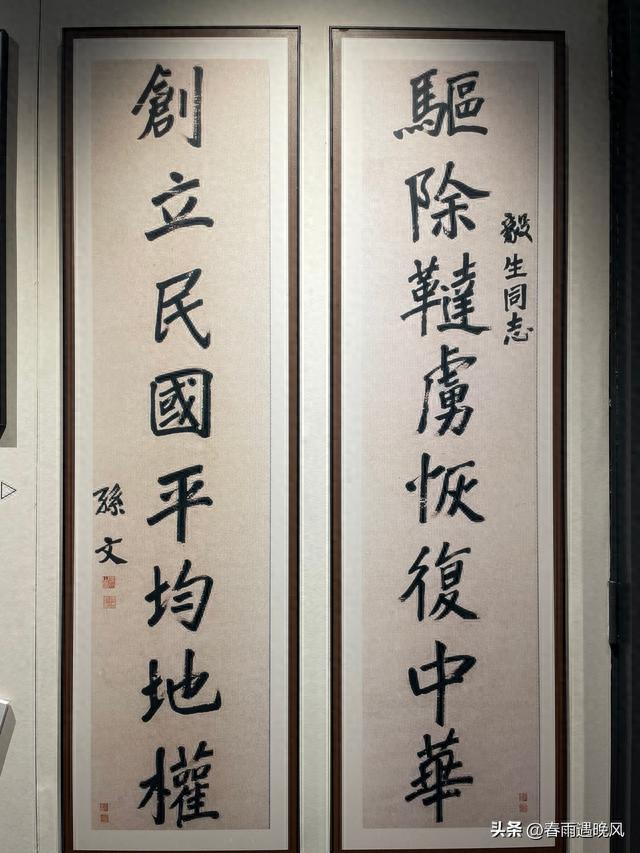 驅除韃虜恢復中華
毅生同志
創立民國平均地權
孫文
头条 @春雨遇晚风